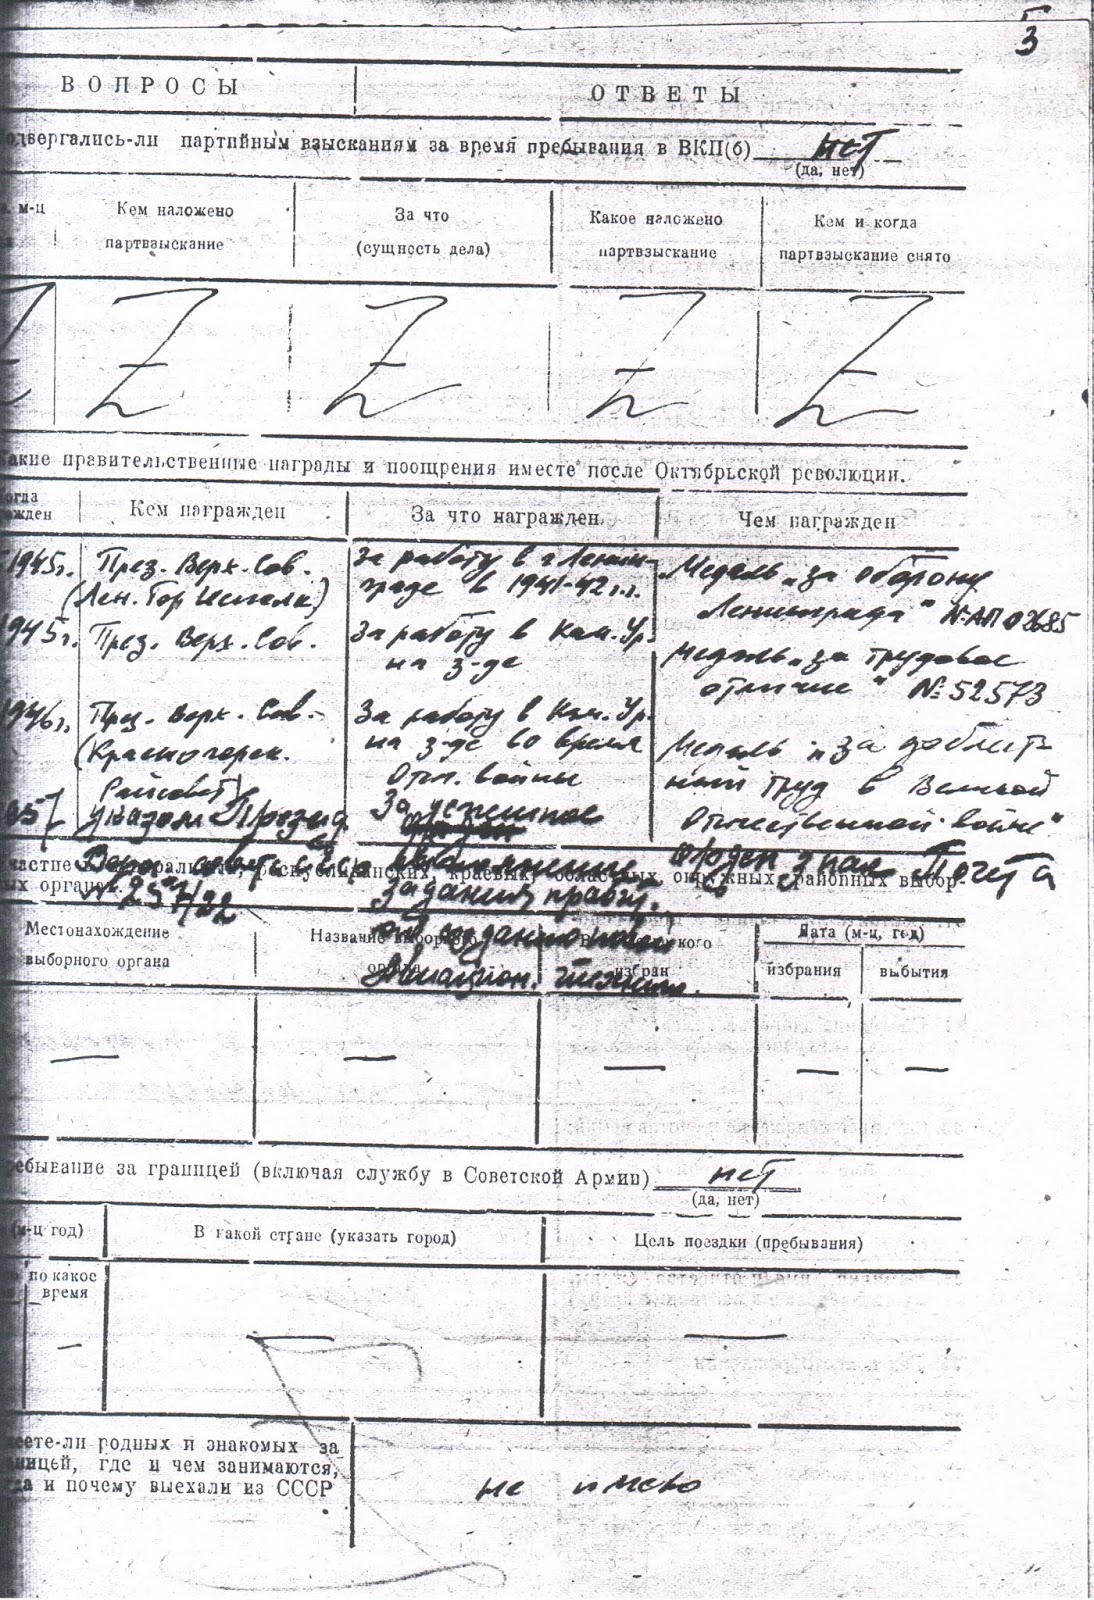 3
ВОПРОСЫ ОТВЕТЫ
одвергались-ли партийным взысканиям за время пребывания в ВКП(б) нет
(да, нет)
м-ц Кем наложено За что Какое наложено Кем и когда
партвзыскание (сущность дела) партвзыскание партвзыскание снято
Z Z Z Z Z
акие правительственные награды и поощрения имеете после Октябрьской революции.
огда Кем награжден За что награжден Чем награжден
ажден
1945г. През. Верх. Сов. За работу в г Ленин- Медаль „за оборону
(Лен. Гор Исполк) граде в 1941-42 г.г. Ленинграда" № АП 02685
1945г. През. Верх. Сов. За работу в Кам. Ур. Медаль „за трудовое
на з-де отличие" № 52573
1946г. През. Верх. Сов. За работу в Кам. Ур. Медаль „за доблест
(Красногорск. на з-де во время ный труд в Великой
Райсовет) Отеч. войны Отечественной войне"
57 указом Презид За успешное
Верх. совета СССР выполнение орден знак Почета
частие в центральных, республиканских, краевых, областных, окружных, районных выбор-
ых органах. № 257/22 задания правит.
по созданию новой
Местонахождение Название выборного В избран Дата (м-ц, год)
выборного органа избрания выбытия
авиацион. техники.
— — — — —
ребывание за границей (включая службу в Советской Армии) нет
(да, нет)
(м-ц год) В какой стране (указать город) Цель поездки (пребывания)
по какое
время
— — —
еете-ли родных и знакомых за
ницей, где и чем занимаются,
да и почему выехали из СССР не имею